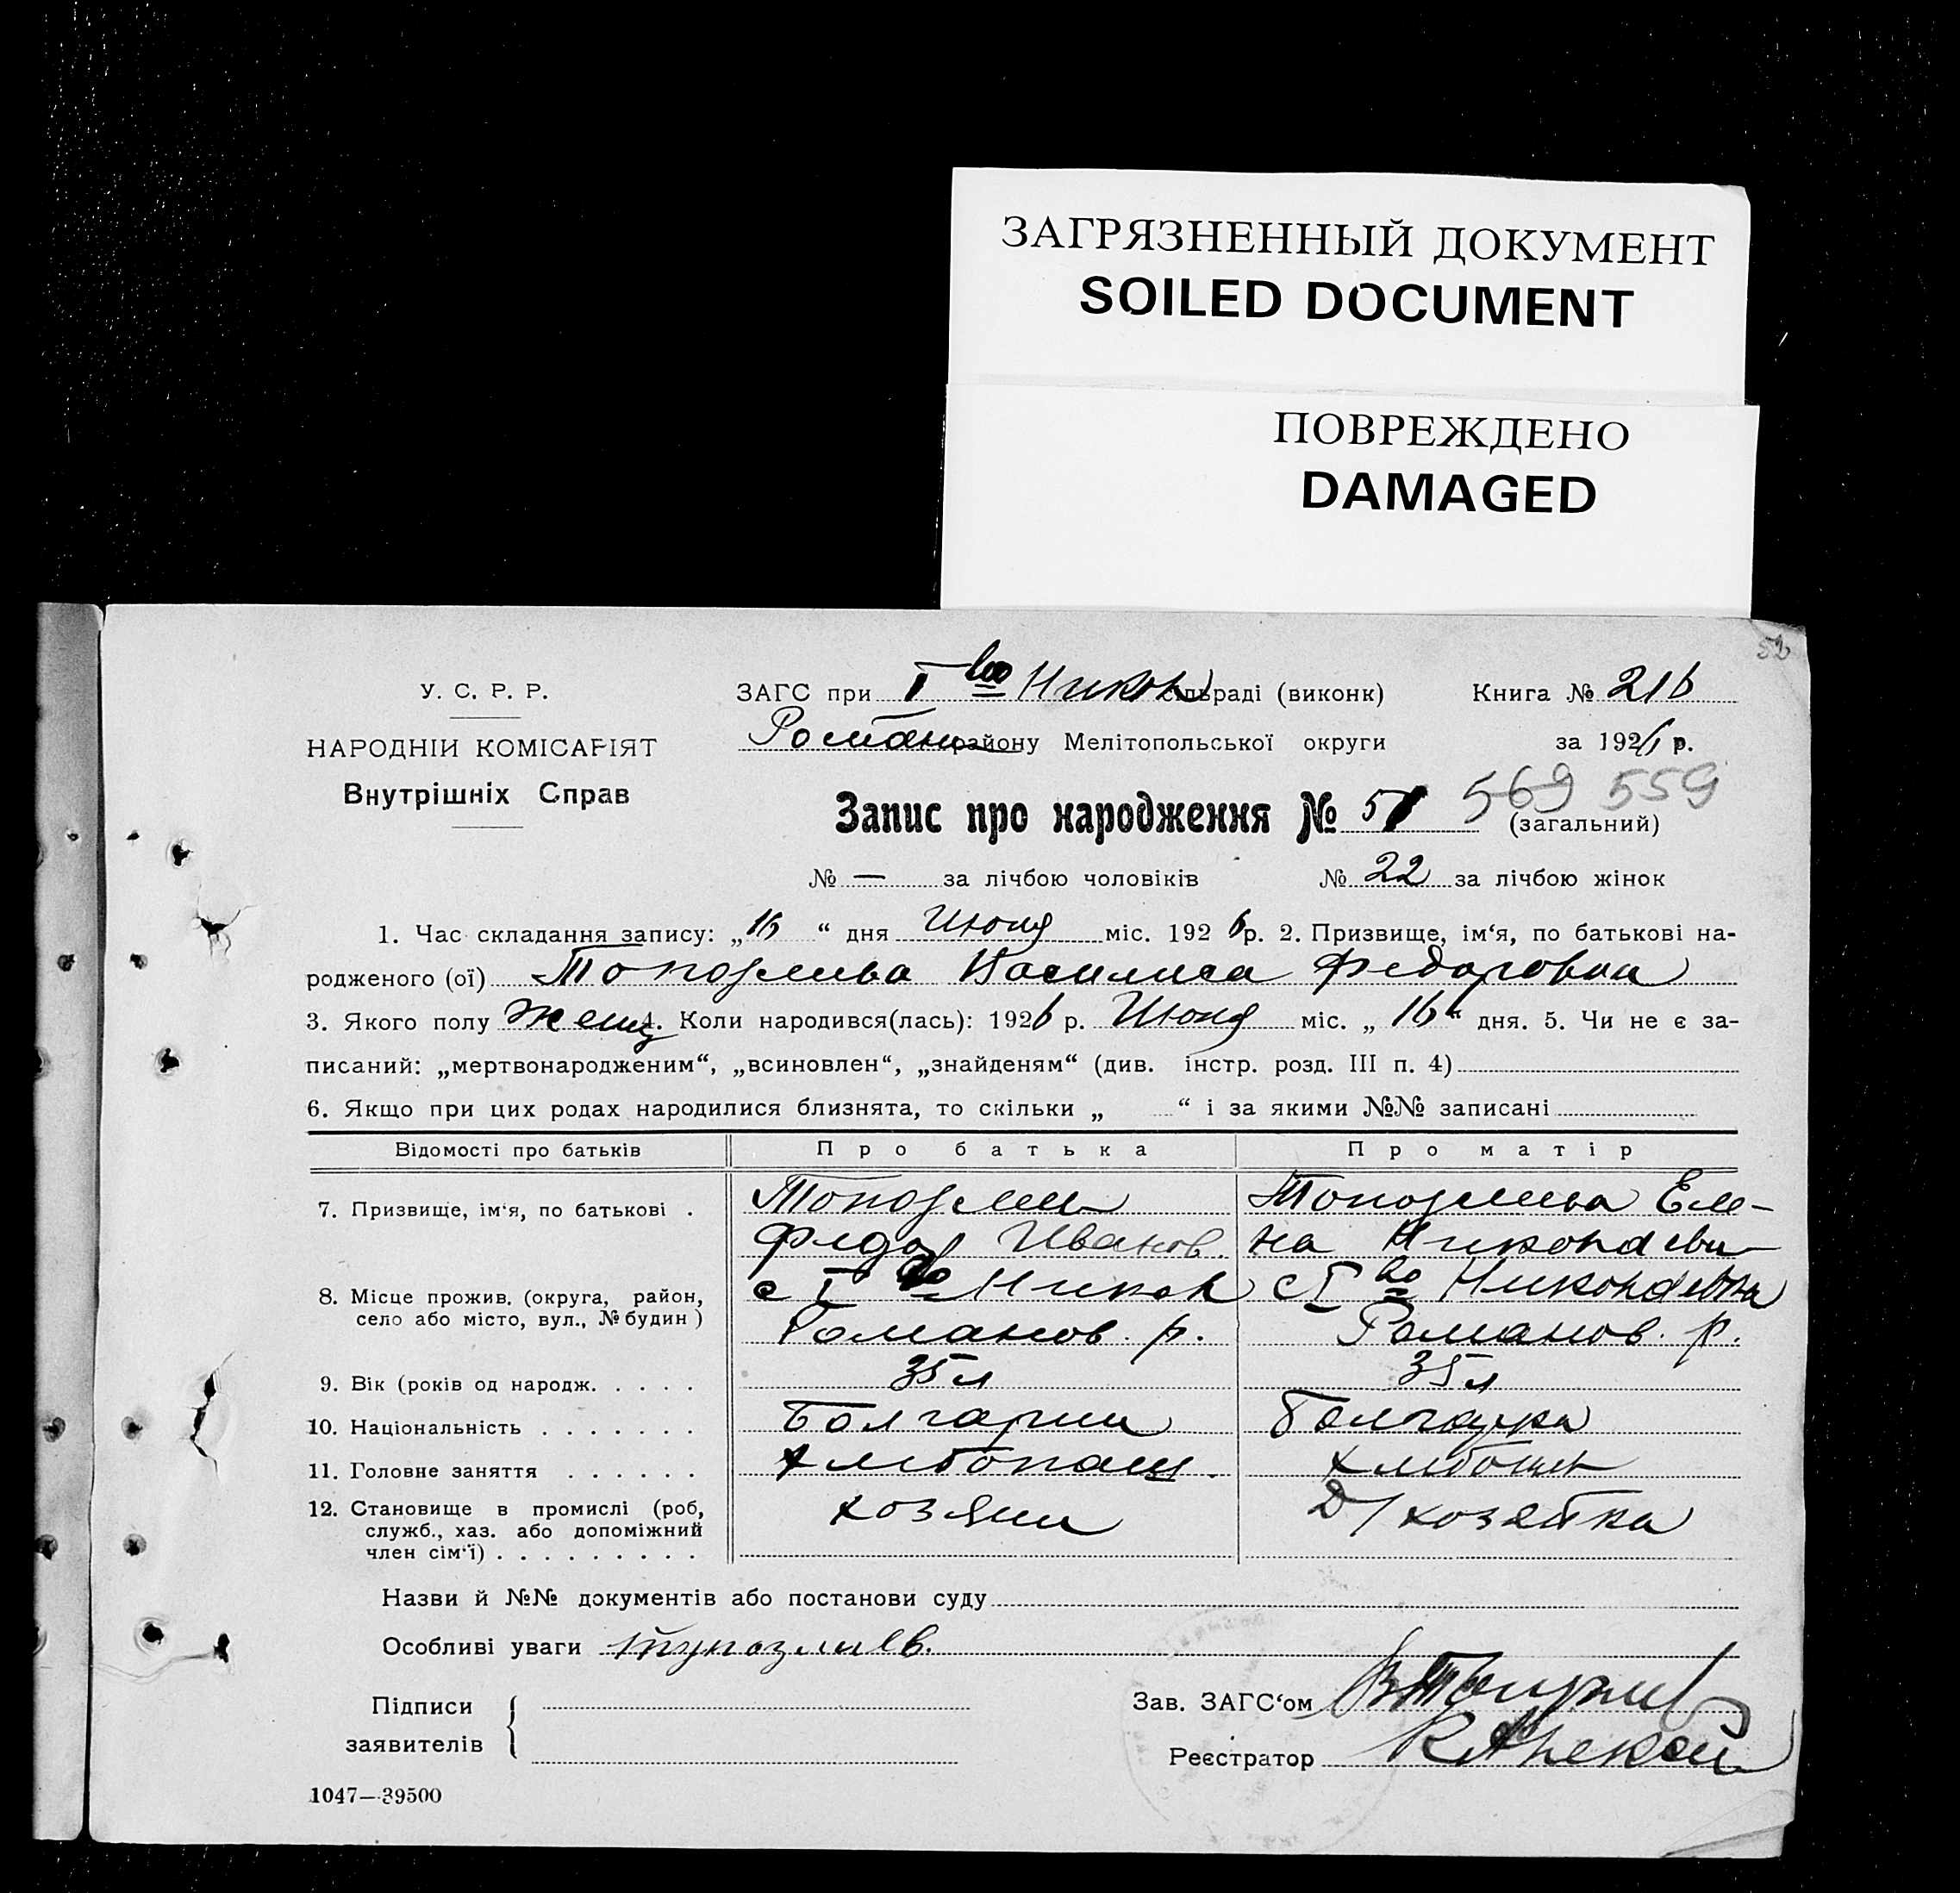 ЗАГРЯЗНЕННЫЙ ДОКУМЕНТ
SOILED DOCUMENT
ПОВРЕЖДЕНО
DAMAGED
52
У. С. Р. Р.
НАРОДНІЙ КОМІСАРІЯТ
Внутрішніх Справ
ЗАГС при І во Никон сільраді (виконк) Книга № 216
Роман району Мелітопольської округи за 1926 р.
Запис про народження № 51 569 559
(загальний)
№ — за лічбою чоловіків № 22 за лічбою жінок
1. Час складання запису: „16 “ дня Июня міс. 192 6 р. 2. Призвище, ім‘я, по батькові на-
родженого (ої) Топозлиева Василиса Федоровна
3. Якого полу Женщ 4. Коли народився(лась): 1926 р. Июня міс. „ 16 “ дня. 5. Чи не є за-
писаний: „мертвонародженим“, „всиновлен“, „знайденям“ (див. інстр. розд. III п. 4)
6. Якщо при цих родах народилися близнята, то скільки „ “ і за якими №№ записані
Відомості про батьків Про батька Про матір
7. Призвище, ім‘я, по батькові . Топозлиев Топозлиева Еле-
Федор Иванов. на
8. Місце прожив. (округа, район, с І во Никон с І во Никоноевка
село або місто, вул., № будин ) Романов. р. Романов. р.
9. Вік (років од народж. . . . . 35 л 35 л
10. Національність . . . . . . . Болгарин Болгарка
11. Головне заняття . . . . . . Хлебопаш.
12. Становище в промислі (роб, хозяин Д/хозяйка
служб., хаз. або допоміжний
член сім‘ї) . . . . . . . . .
Назви й №№ документів або постанови суду
Особливі уваги тупозлиев.
Підписи
заявителів
Зав. ЗАГС‘ом
Реєстратор
1047—39500